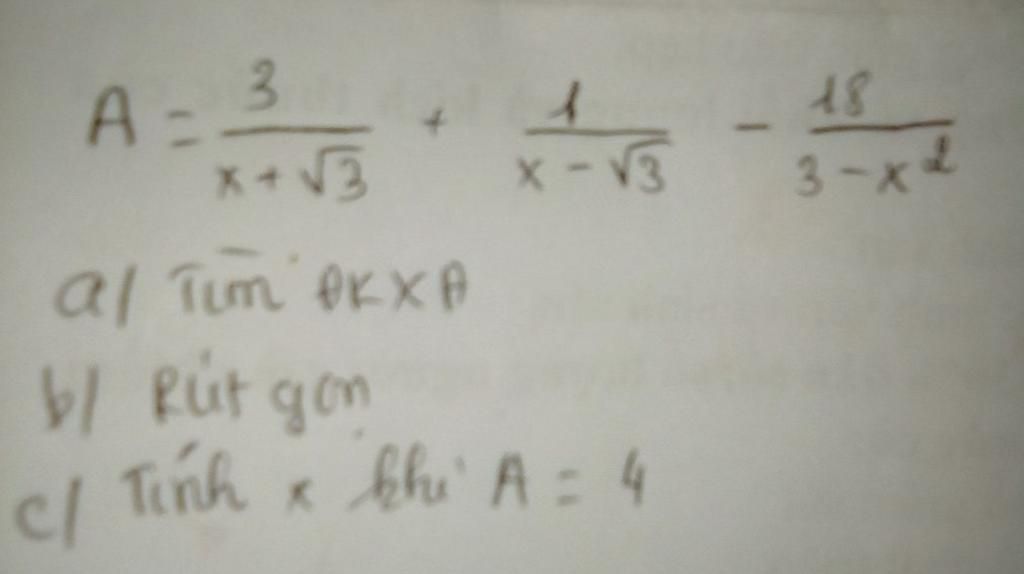 A = 3/(x + √3) + 1/(x - √3) - 18/(3 - x²)
a/ Tìm ĐKXĐ
b/ Rút gọn
c/ Tính x khi A = 4